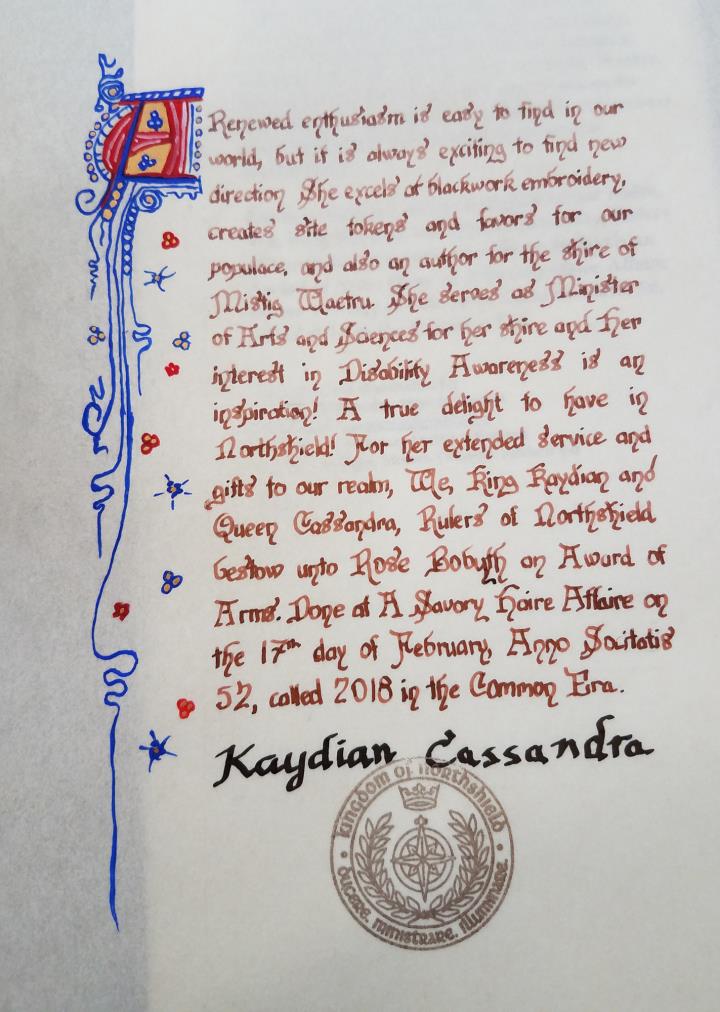 A Renewed enthusiasm is easy to find in our
world, but it is always exciting to find new
direction She excels at blackwork embroidery,
creates site tokens and favors for our
populace, and also an author for the shire of
Mistig Waetru. She serves as Minister
of Arts and Sciences for her shire and her
interest in Disability Awareness is an
inspiration! A true delight to have in
Northshield! For her extended service and
gifts to our realm, We, King Kaydian and
Queen Cassandra, Rulers of Northshield
bestow unto Rose Bobyth an Award of
Arms. Done at A Savory Haire Affaire on
the 17th day of February, Anno Socitatis
52, called 2018 in the Common Era.
Kaydian Cassandra
Kingdom of Northshield
ducere. ministrare. illuminare.